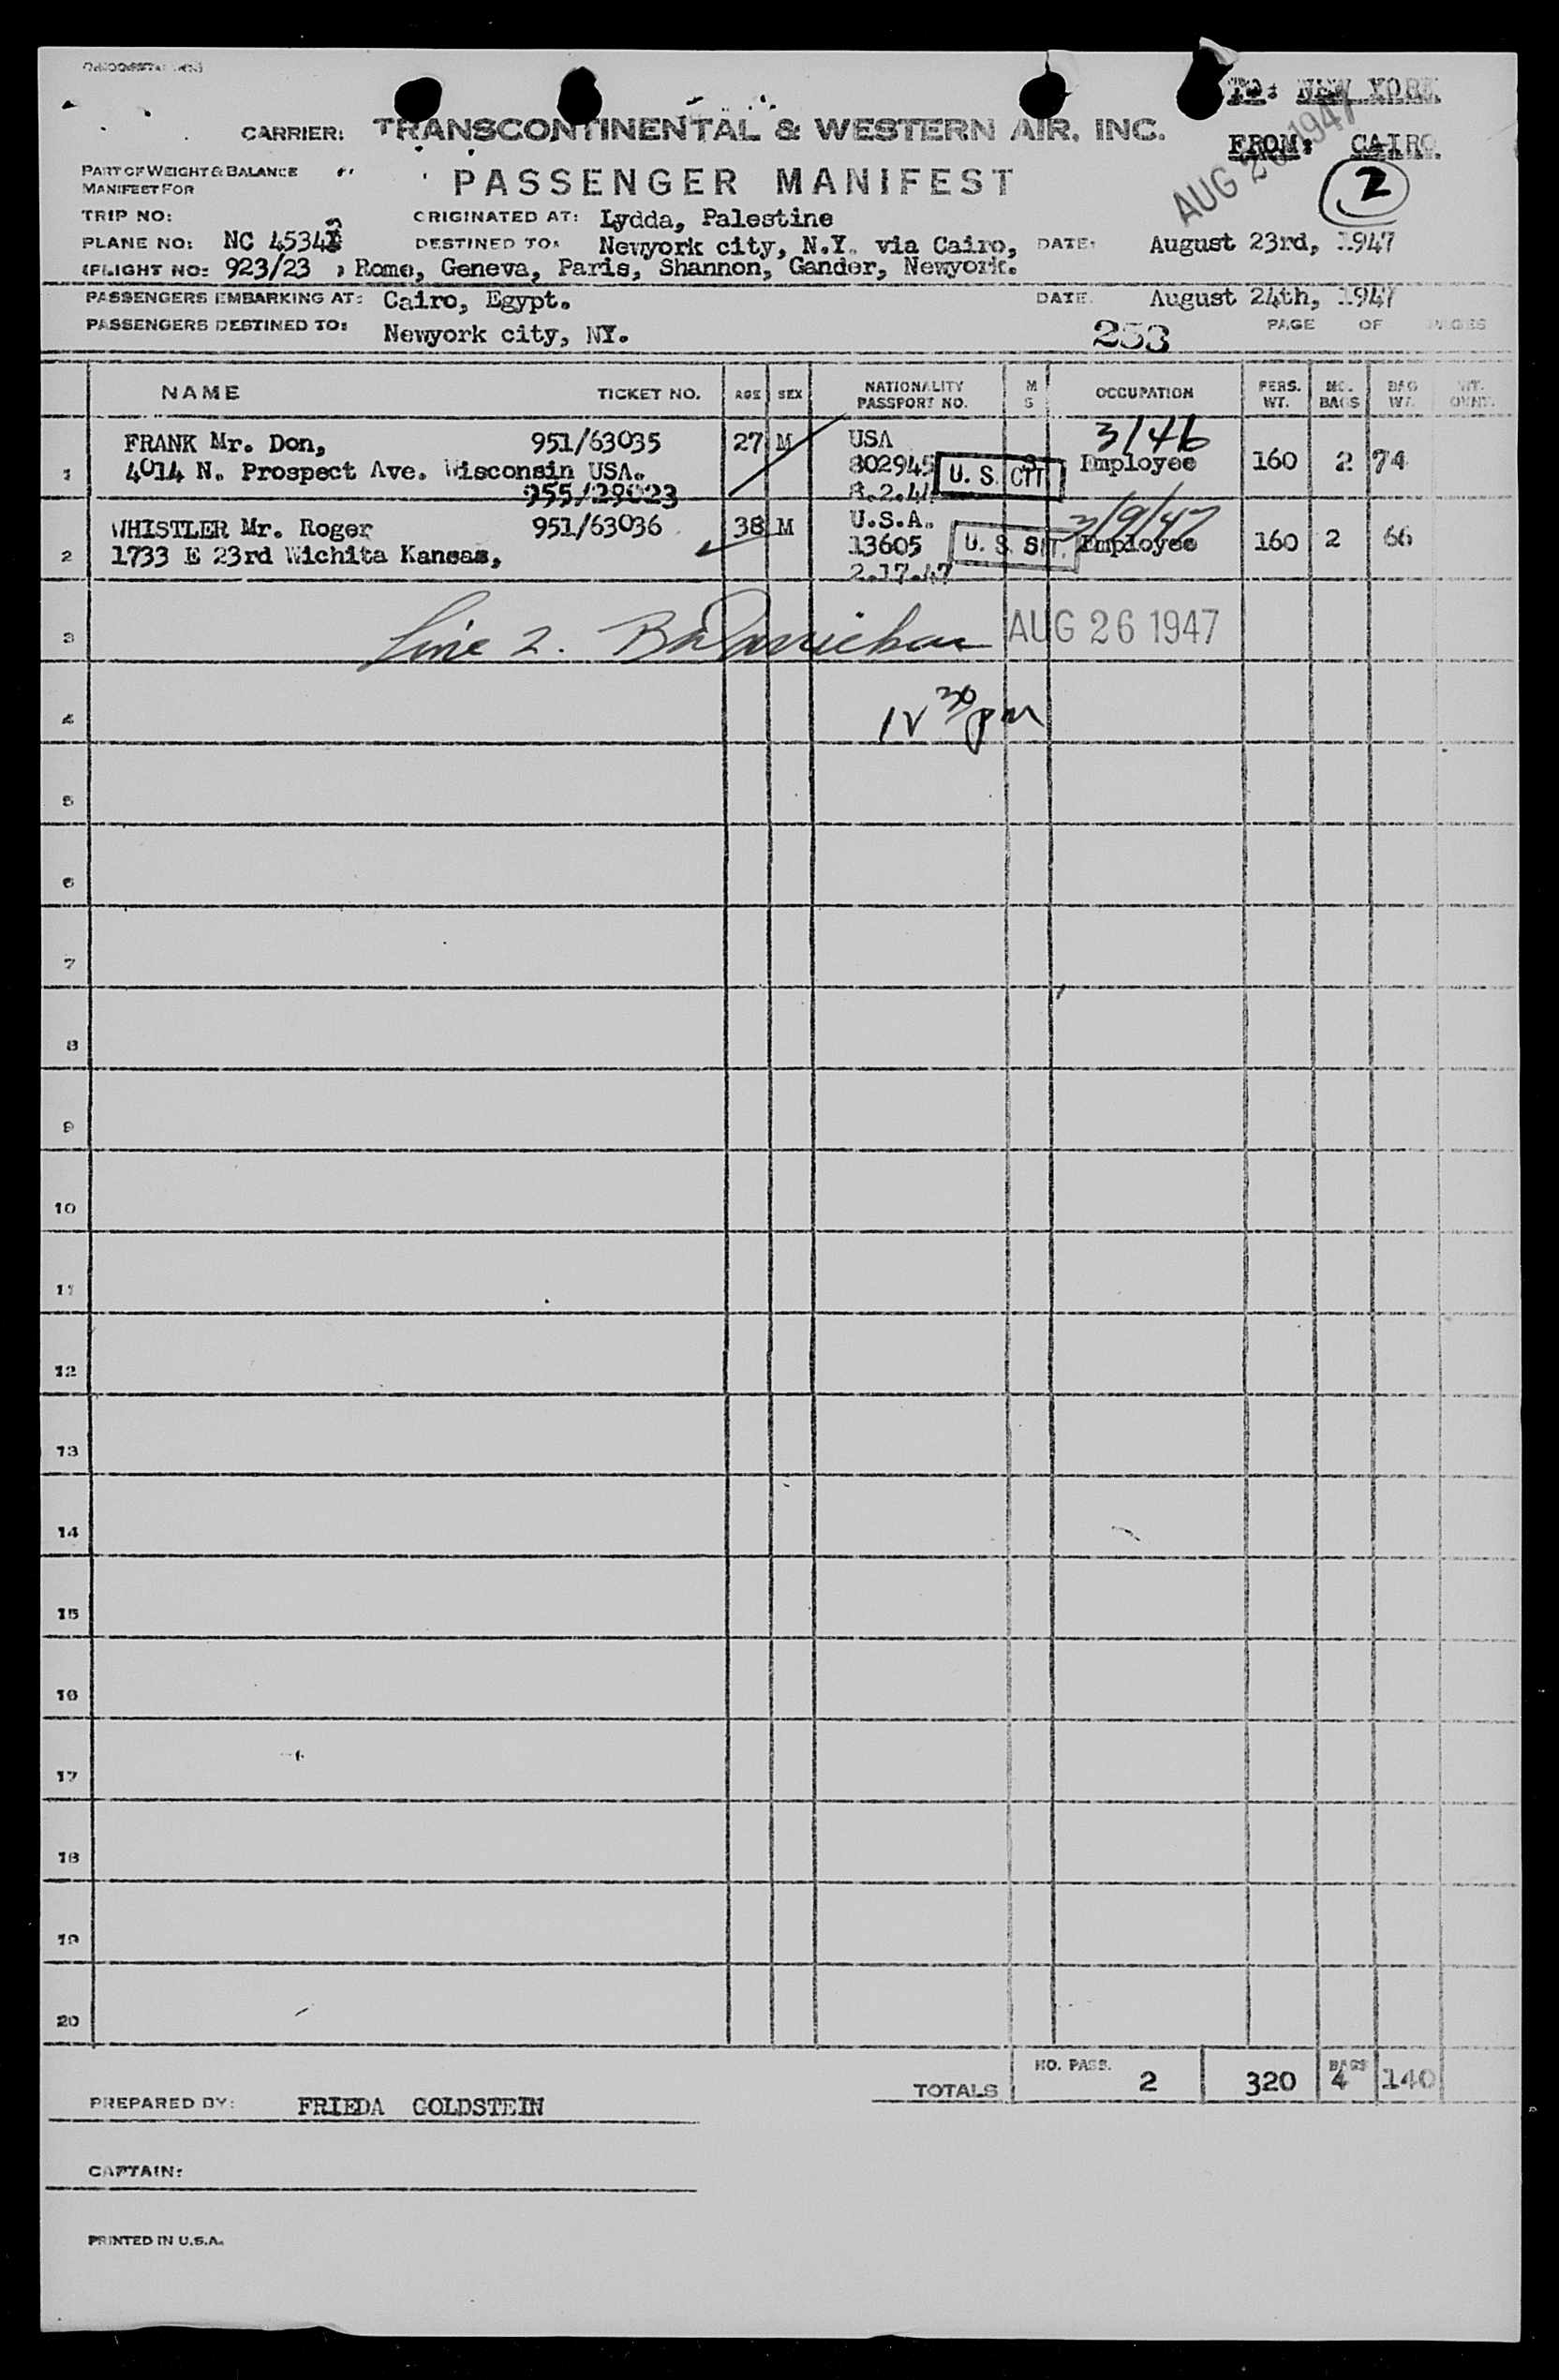 TO: NEW YORK
CARRIER: TRANSCONTINENTAL & WESTERN AIR, INC.
FROM: CAIRO
AUG 26 1947
PART OF WEIGHT & BALANCE
MANIFEST FOR
PASSENGER MANIFEST
2
TRIP NO: ORIGINATED AT: Lydda, Palestine
PLANE NO: NC 45343 DESTINED TO: Newyork city, N.Y. via Cairo, DATE: August 23rd, 1947
FLIGHT NO: 923/23 , Rome, Geneva, Paris, Shannon, Gander, Newyork.
PASSENGERS EMBARKING AT: Cairo, Egypt. DATE August 24th, 1947
PASSENGERS DESTINED TO: Newyork city, NY. 253 PAGE OF PAGES
NAME TICKET NO. AGE SEX NATIONALITY PASSPORT NO. M S OCCUPATION PERS. WT. NO. BAGS BAG WT. WT.
3/46
FRANK Mr. Don, 951/63035 27 M USA
1 4014 N. Prospect Ave. Wisconsin USA. 302945 U. S. CIT Employee 160 2 74
WHISTLER Mr. Roger 951/63036 38 M U.S.A. 3/9/47
2 1733 E 23rd Wichita Kansas, 13605 U. S. S Employee 160 2 66
2.17.47
3 Line 2. AUG 26 1947
4 12 30 pm
5
6
7
8
9
10
11
12
13
14
15
16
17
18
19
20
TOTALS NO. PASS. 2 320 BAGS 4 140
PREPARED BY: FRIEDA GOLDSTEIN
CAPTAIN:
PRINTED IN U.S.A.